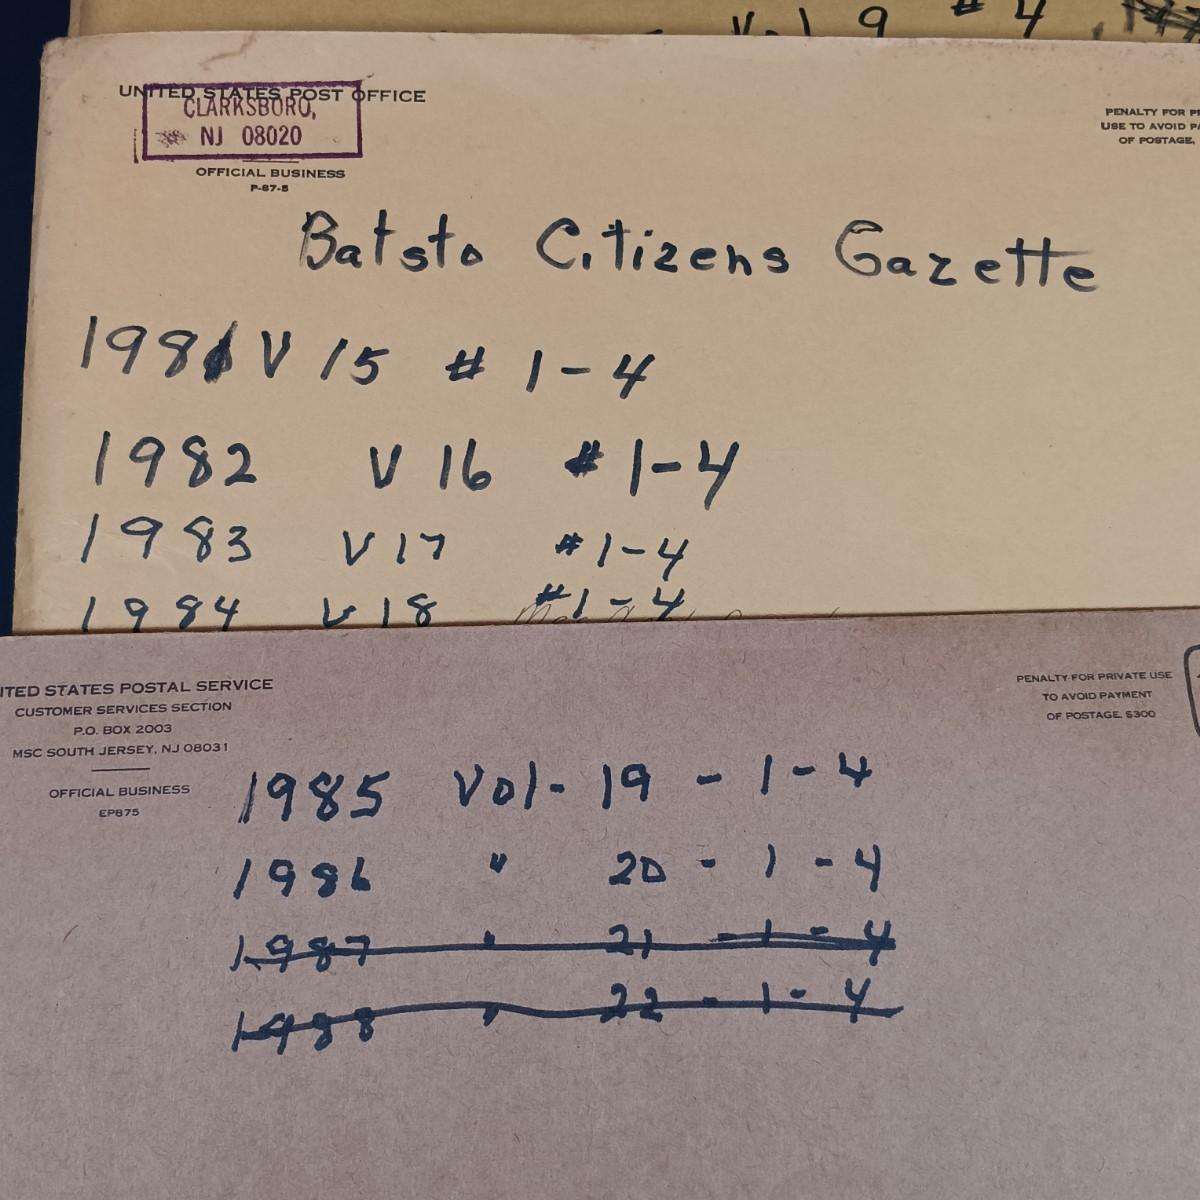 Vol 9 #4
UNITED STATES POST OFFICE
CLARKSBORO,
NJ 08020
OFFICIAL BUSINESS
P-87-5
PENALTY FOR
USE TO AVOID
OF POSTAGE,
Batsto Citizens Gazette
1981 V 15 # 1-4
1982 V 16 # 1-4
1983 V 17 # 1-4
1984 V 18 # 1-4
UNITED STATES POSTAL SERVICE
CUSTOMER SERVICES SECTION
P.O. BOX 2003
MSC SOUTH JERSEY, NJ 08031
OFFICIAL BUSINESS
EP875
PENALTY FOR PRIVATE USE
TO AVOID PAYMENT
OF POSTAGE, $300
1985 Vol- 19 - 1-4
1986 " 20 - 1-4
1987 " 21 - 1-4
1988 " 22 - 1-4